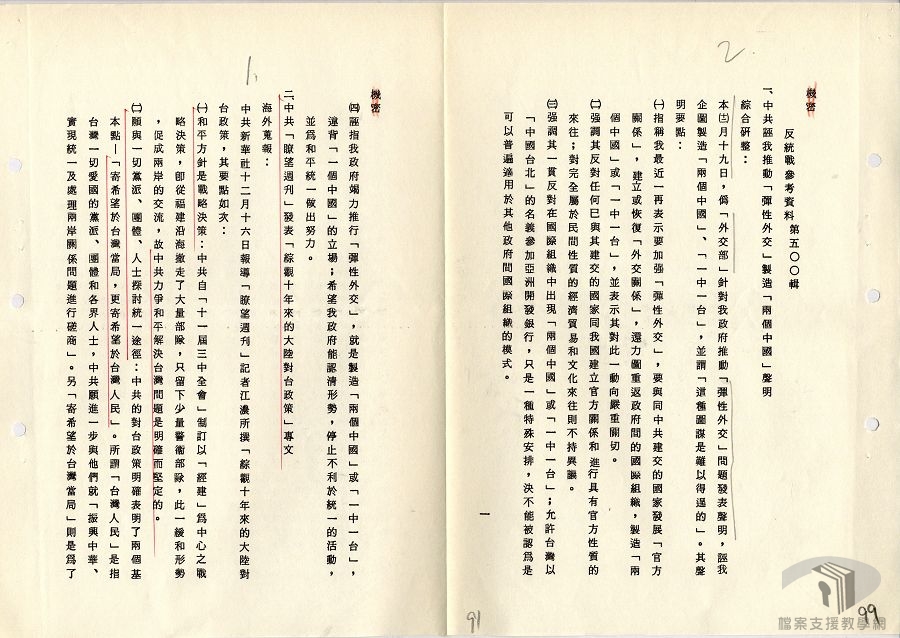 2.
機密
反統戰參考資料第五〇〇輯
一、中共誣我推動「彈性外交」製造「兩個中國」聲明
綜合研整：
本㈫月十九日，偽「外交部」針對我政府推動「彈性外交」問題發表聲明，誣我
企圖製造「兩個中國」、「一中一台」，並謂「這種圖謀是難以得逞的」。其聲
明要點：
㈠指稱我最近一再表示要加强「彈性外交」，要與同中共建交的國家發展「官方
關係」，建立或恢復「外交關係」，還力圖重返政府間的國際組織，製造「兩
個中國」或「一中一台」，並表示其對此一動向嚴重關切。
㈡强調其反對任何已與其建交的國家同我國建立官方關係和進行具有官方性質的
來往；對完全屬於民間性質的經濟貿易和文化來往則不持異議。
㈢强調其一貫反對在國際組織中出現「兩個中國」或「一中一台」；允許台灣以
「中國台北」的名義參加亞洲開發銀行，只是一種特殊安排，決不能被認爲是
可以普遍適用於其他政府間國際組織的模式。
一
99
1.
機密
㈣誣指我政府竭力推行「彈性外交」，就是製造「兩個中國」或「一中一台」，
違背「一個中國」的立場；希望我政府能認清形勢，停止不利於統一的活動，
並爲和平統一做出努力。
二、中共「瞭望週刊」發表「綜觀十年來的大陸對台政策」專文
海外蒐報：
中共新華社十二月十六日報導「瞭望週刊」記者江濃所撰「綜觀十年來的大陸對
台政策，其要點如次：
㈠和平方針是戰略決策：中共自「十一屆三中全會」制訂以「經建」爲中心之戰
略決策，即從福建沿海撤走了大量部隊，只留下少量警衞部隊，此一緩和形勢
，促成兩岸的交流，故中共力爭和平解決台灣問題是明確而堅定的。
㈡願與一切黨派、團體、人士探討統一途徑：中共的對台政策明確表明了兩個基
本點—「寄希望於台灣當局，更寄希望於台灣人民」。所謂「台灣人民」是指
台灣一切愛國的黨派、團體和各界人士，中共願進一步與他們就「振興中華、
實現統一及處理兩岸關係問題進行磋商」。另「寄希望於台灣當局」則是爲了
91
檔案支援教學網